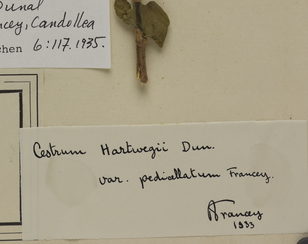 Dunal
ncey, Candollea
chen 6:117.1935.
Cestrum Hartwegii Dun.
var. pedicellatum Francey.
Francey
1933